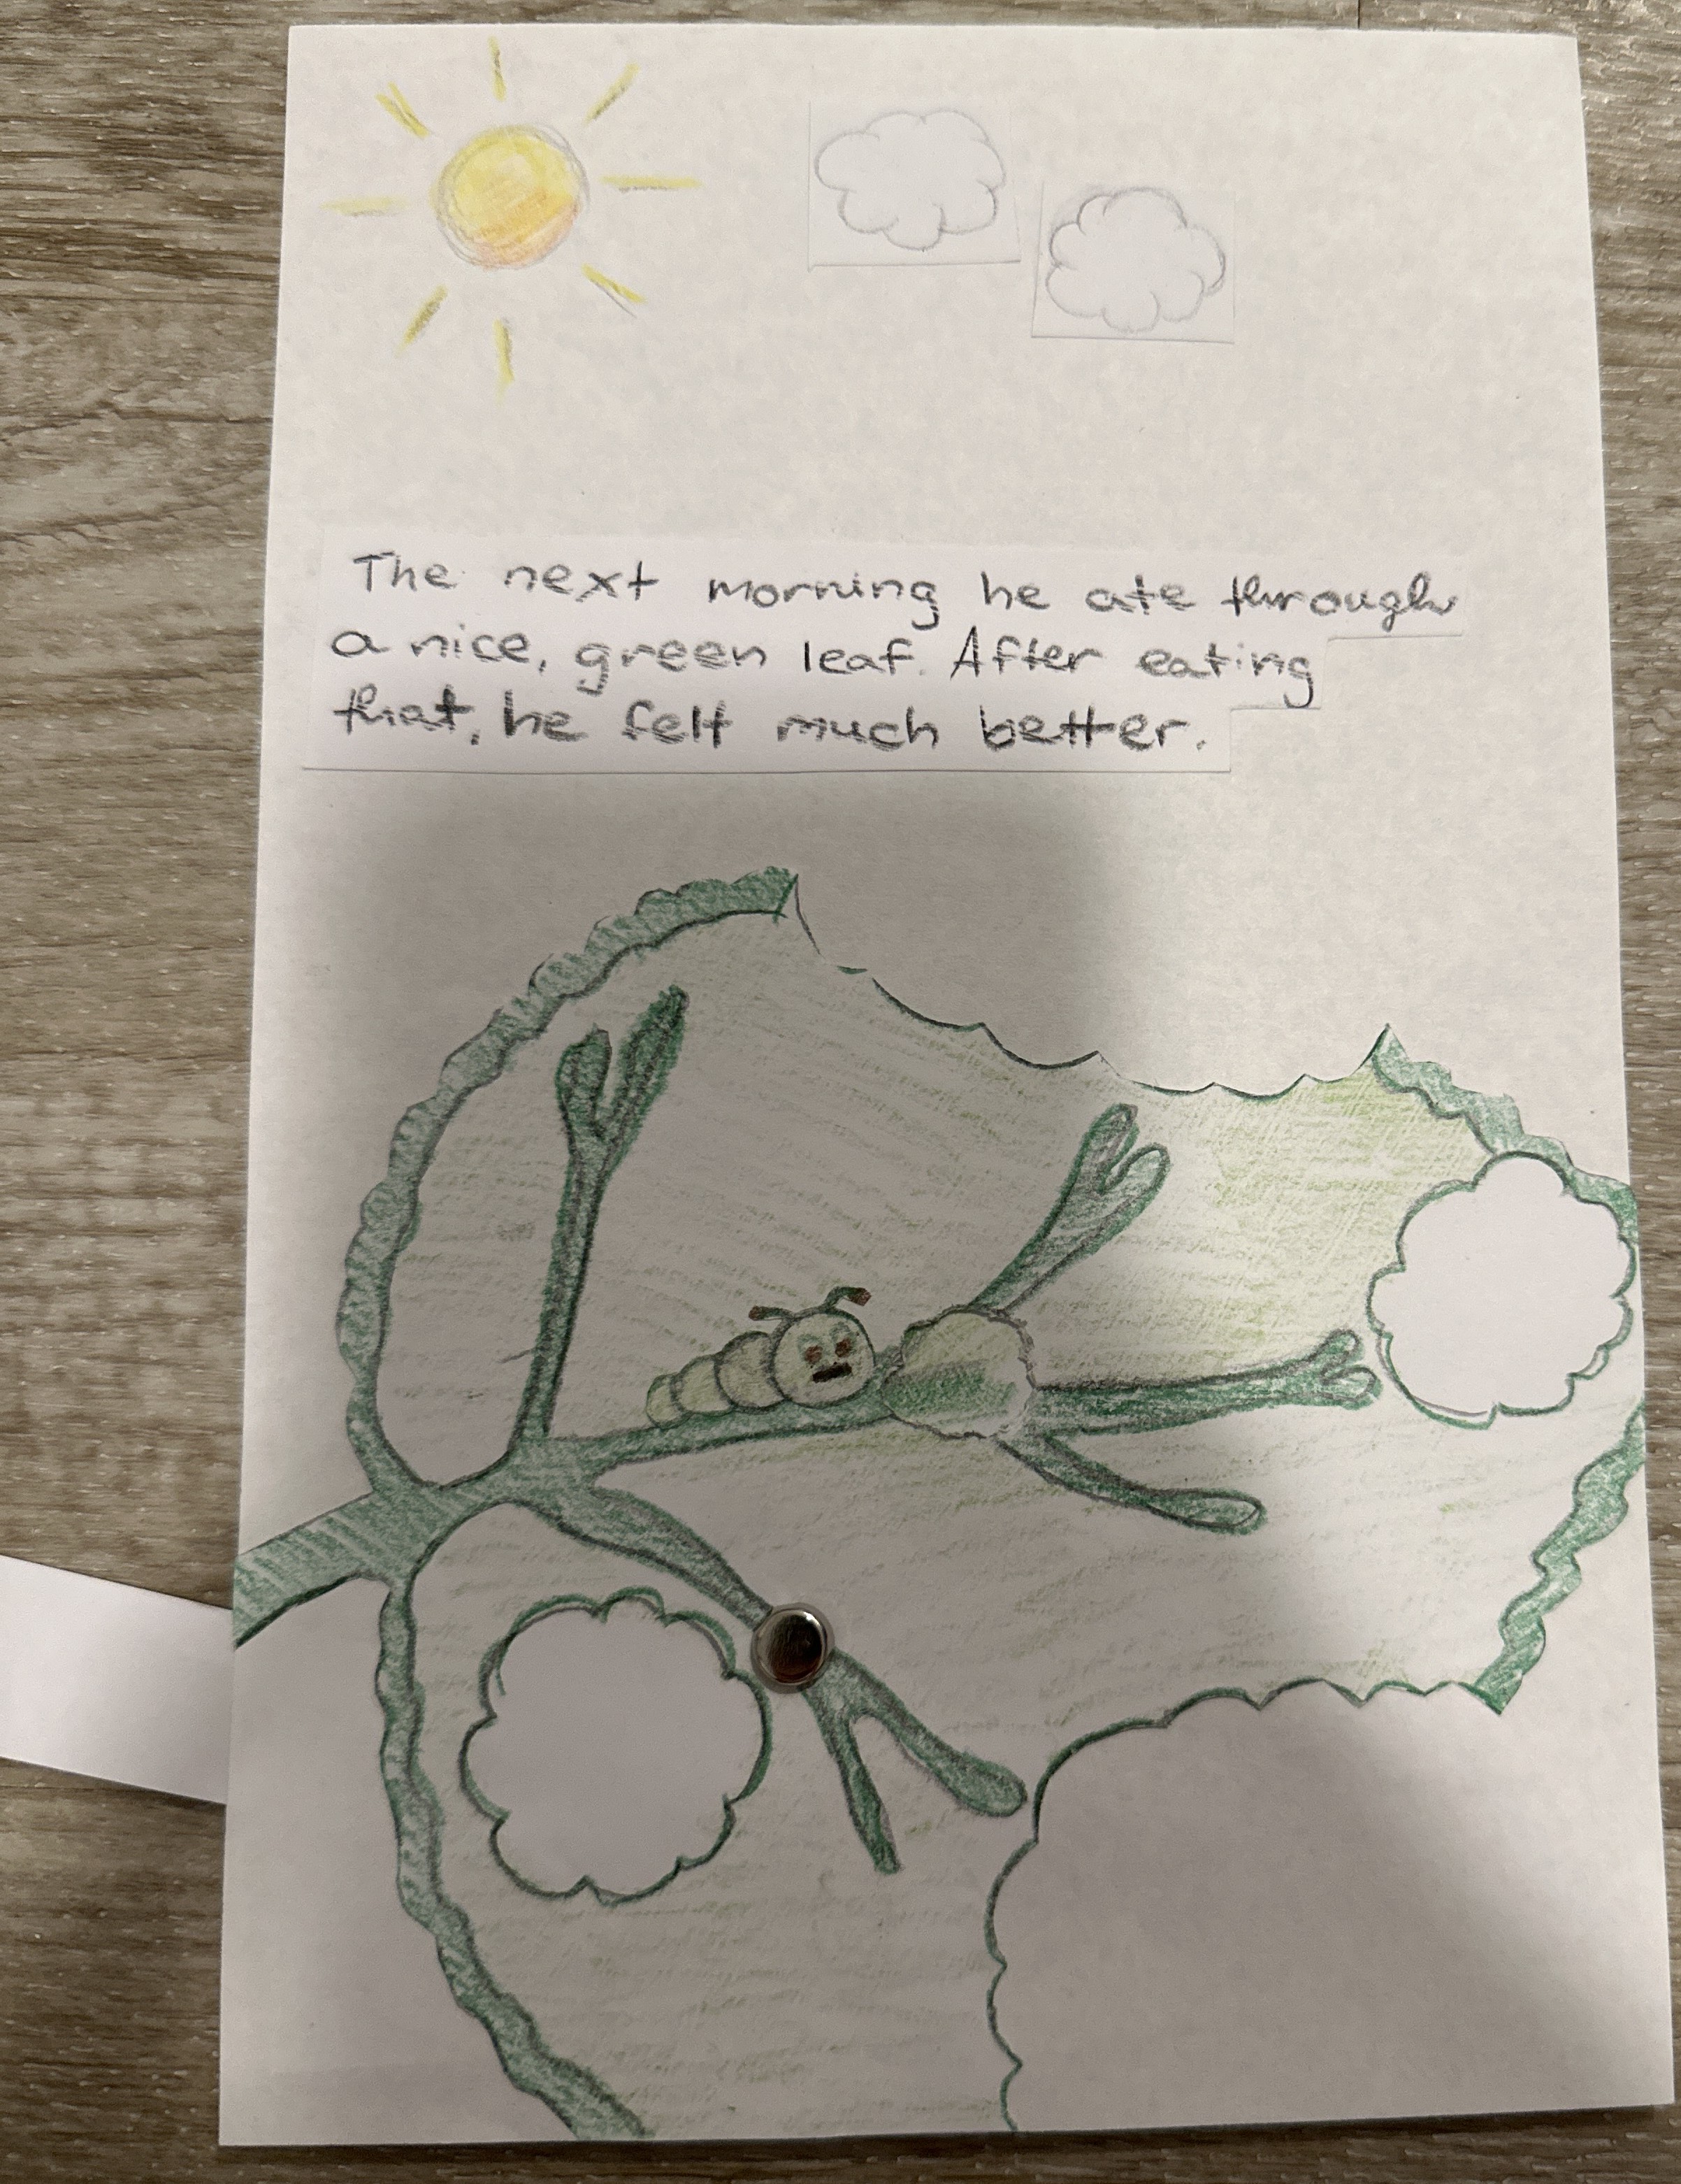 The next morning he ate through
a nice, green leaf. After eating
that, he felt much better.